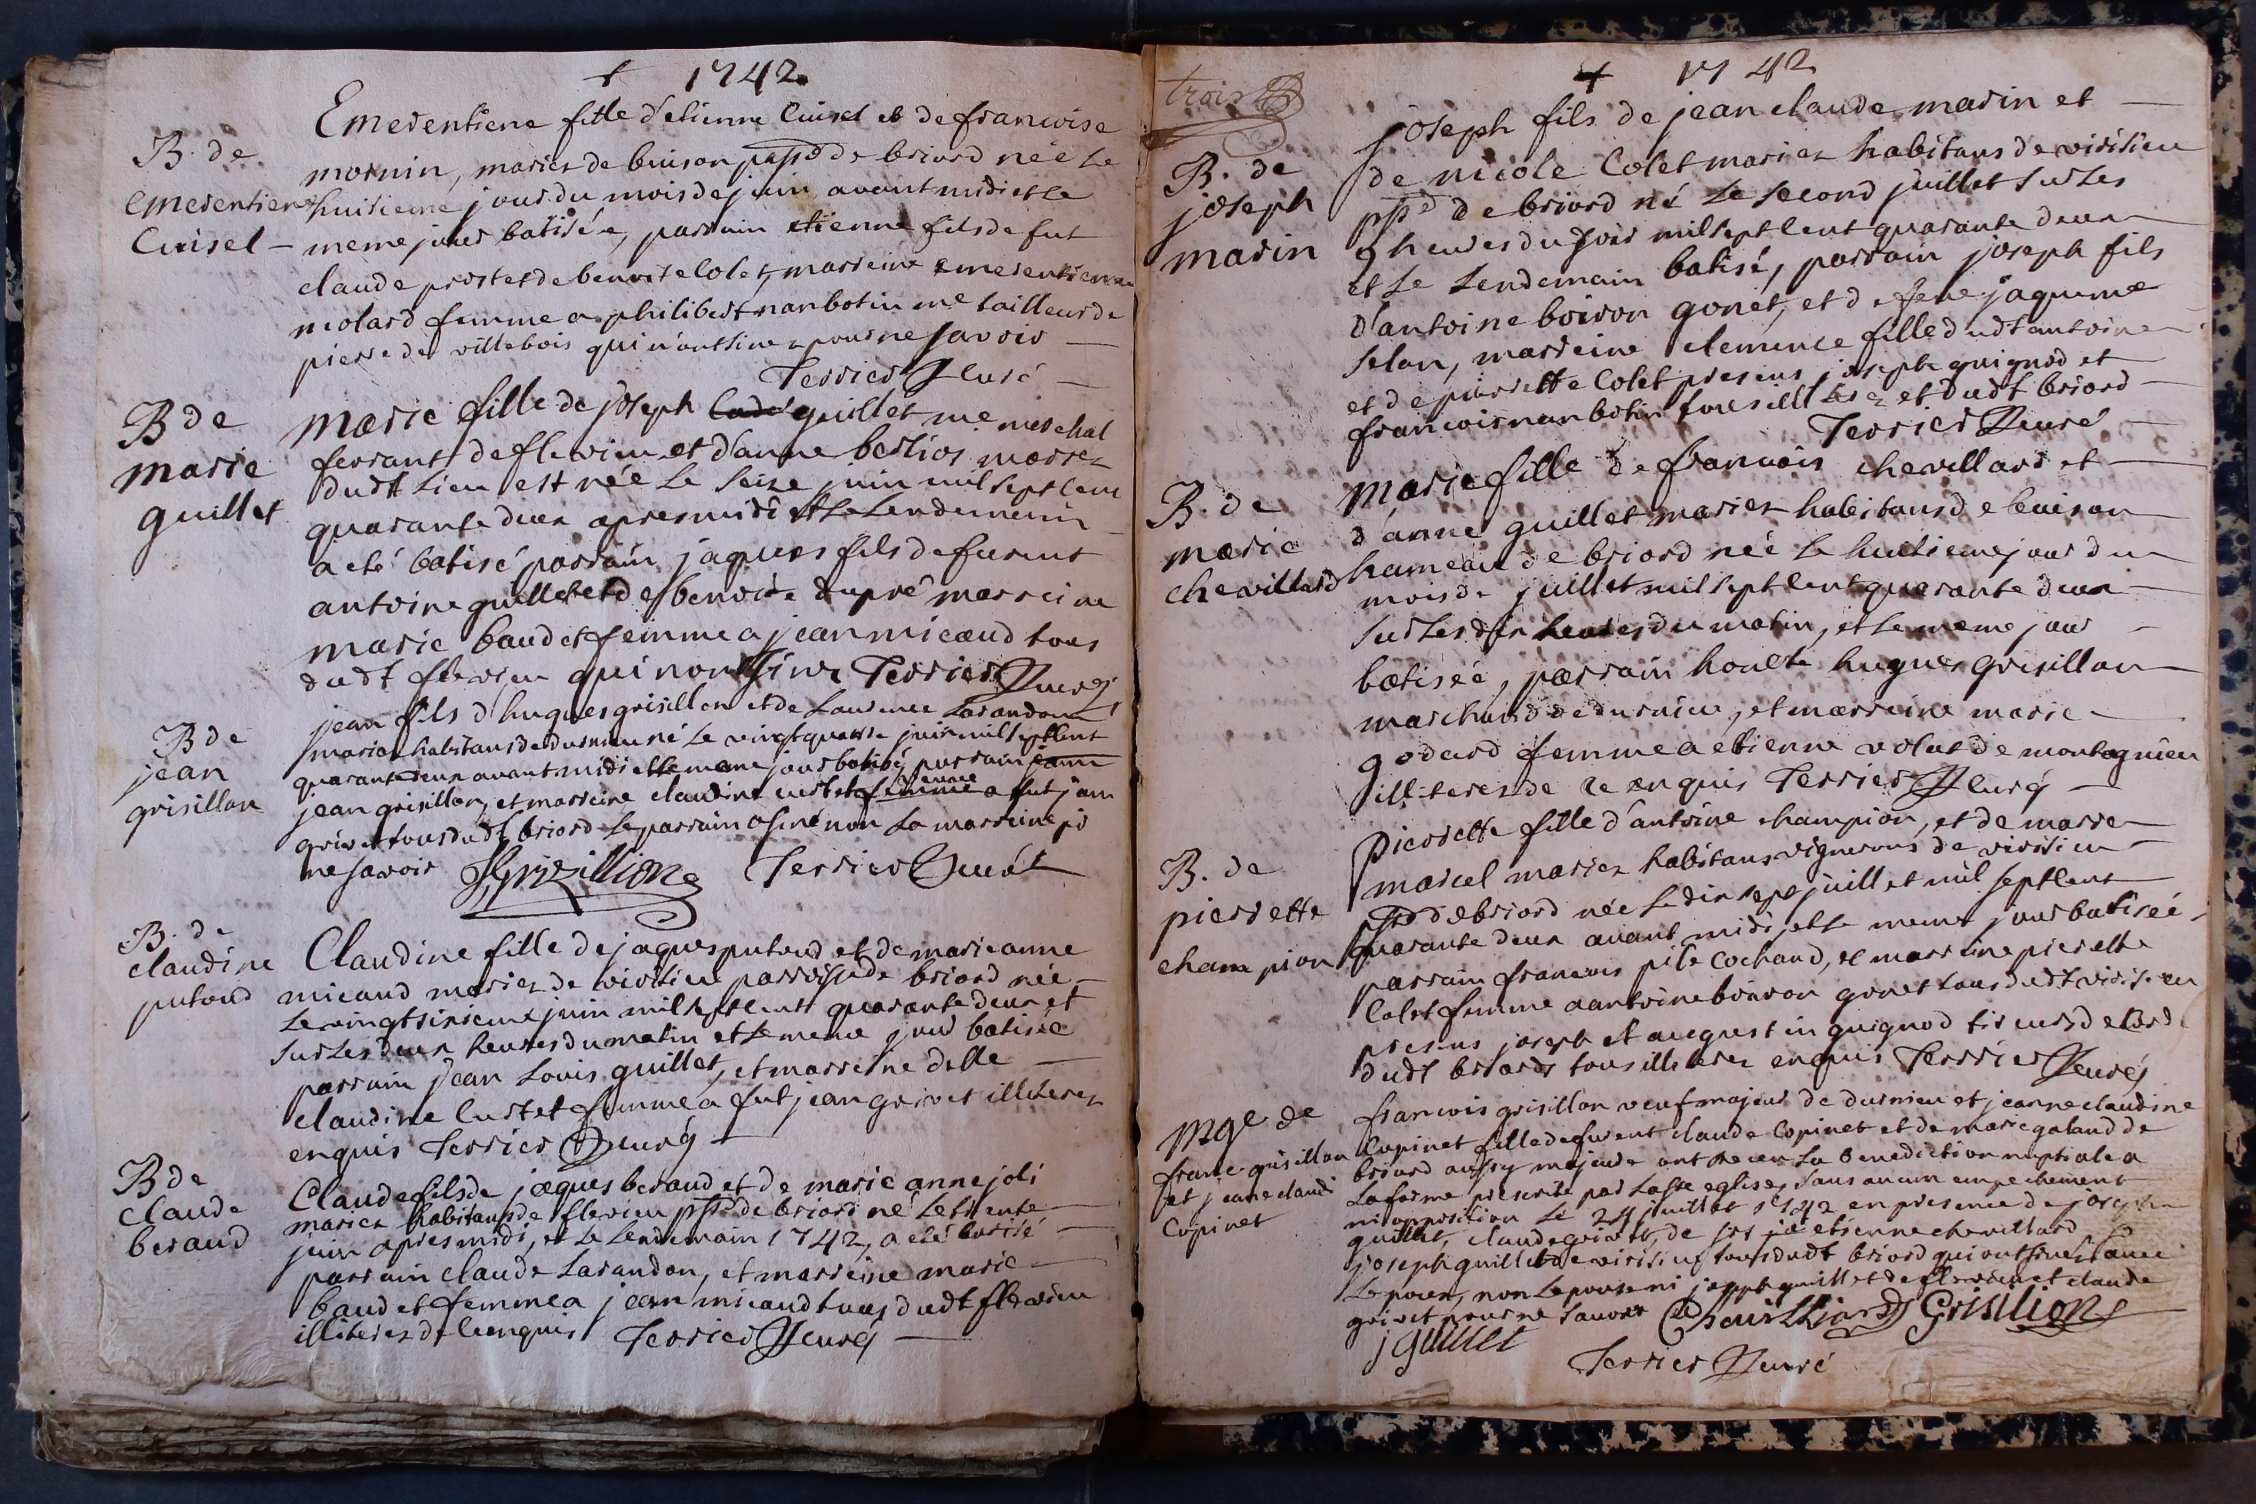 + 1742
B. de
Emerentiene
Cuisel
Emerentiene fille d'etienne Cuisel et de francoise
mornin, mariez de buison ppsse de briord née le
huitieme jour du mois de juin avant midi et le
meme jour batisée, parrain etienne fils de fut
claude prost et de benoite Colet, marreine emerentiene
molard femme a philibert nanbotin me tailleur de
pierre de villebois qui n'ont sinez pour ne savoir
Terrier Curé
B de
marie
guillet
marie fille de joseph guillet me mareschal
ferrant de flevieu et d'anne berlios mariez
dudt lieu est née le seize juin mil sept cent
quarante deux apres midi et le lendemain
a eté batisé parrain jaques fils de furent
antoine guillet et de benoite dupré marreine
marie baudet femme a jean micaud tous
dudt flevieu qui n'ont sinez Terrier Curé
B de
jean
grisillon
jean fils d'hugues grisillon et de Laurence Larandon
mariez habitans de durnieu né le vingt quatre juin mil sept cent
quarante deux avant midi et le meme jour batisé, parrain
jean grisillon, et marreine claudine curtet a fut jean
grivet tous dudt briord le parrain a siné non la marreine pr
ne savoir JGrizilliong Terrier Curé
B. de
claudine
putoud
Claudine fille de jaques putoud et de marie anne
micaud mariez de virisieu parroisse de briord née
le vingt sixieme juin mil sept cent quarante deux et
sur les deux heures du matin et le meme jour batisée
parrain jean Louis guillet, et marreine delle
claudine Curtet femme a fut jean grivet illiterez
enquis Terrier Curé
B de
claude
beraud
Claude fils de jaques beraud et de marie anne joli
mariez habitans de flevieu ppsse de briord né le trente
juin apres midi, et le lendemain 1742, a eté batisé
parrain claude Larandon, et marreine marie
baudet femme a jean micaud tous dudt flevieu
illiterez de ce enquis Terrier Curé
trois
+ 1742
B. de
joseph
marin
joseph fils de jean claude marin et
de nicole Colet mariez habitans de virisieu
ppsse de briord né le second juillet sur les
9 heures du soir mil sept cent quarante deux
et le lendemain batisé, parrain joseph fils
d'antoine boiron gonet, et de feue jaqueme
selan, marreine clemence fille dudt antoine
et de pierrette Colet presens joseph guignod et
francois nanbotin tous illiterez et dudt briord
Terrier Curé
B. de
marie
chevillard
marie fille de francois chevillard et
d'anne guillet mariez habitans de buison
hameau de briord née le huitieme jour du
mois de juillet mil sept cent quarante deux
sur les dix heures du matin, et le meme jour
batisée, parrain honete hugues Grisillon
marchand de durnieu, et marreine marie
godard femme a etienne volat de montagnieu
illiterez de ce enquis Terrier Curé
B. de
pierrette
champion
pierrette fille d'antoine champion, et de marie
marcel mariez habitans vignerons de virisieu
ppsse de briord née le dix sept juillet mil sept cent
quarante deux avant midi, et le meme jour batisée
parrain francois pile cochand, et marreine pierrette
Colet femme a antoine boiron gonet tous dudt virisieu
presens joseph et augustin guignod
dudt briord tous illiterez enquis Terrier Curé
mge de
franc. grisillon
et jeane claudi
Copinet
francois grisillon veuf majeur de durnieu et jeanne claudine
Copinet fille de furent claude Copinet et de marie galand de
briord aussy majeure ont receu la benediction nuptiale a
la forme prescrite par la ste eglise, sans aucun empechement
ni opposition le 24 juillet 1742 en presence de joseph
guillet, claude grivet, de etienne chevillard
joseph guillet de virisieu, tous dudt briord qui ont siné
l'epoux, non l'epouse ni joseph guillet de flevieu et claude
grivet pour ne savoir Chevilliard Grisiliong
j guillet
Terrier Curé